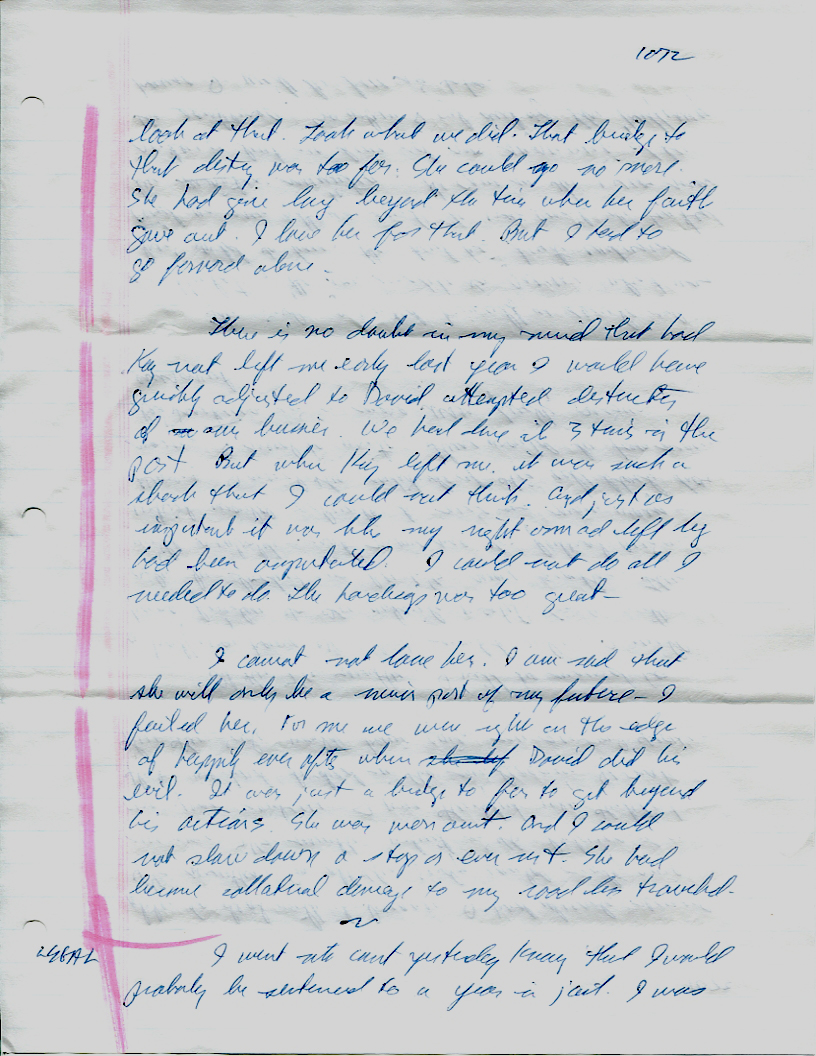 1072
look at that. Look what we did. That bridge to
that destiny was too far. She could go no more.
She had gone long beyond the time when her faith
gave out. I love her for that. But I had to
go forward alone.
There is no doubt in my mind that had
Kay not left me early last year I would have
quickly adjusted to David attempted destruction
of our business. We had done it 3 times in the
past. But when Kay left me, it was such a
shock that I could not think. And just as
important it was like my right arm and left leg
had been amputated. I could not do all I
needed to do. The handicap was too great—
I cannot not love her. I am sad that
she will only be a minor part of my future— I
failed her. For me we were right on the edge
of happily ever after when David did his
evil. It was just a bridge to far to get beyond
his actions. She was worn out. And I could
not slow down or stop or even rest. She had
become collateral damage to my road less traveled.
I went into court yesterday knowing that I would
probably be sentenced to a year in jail. I was